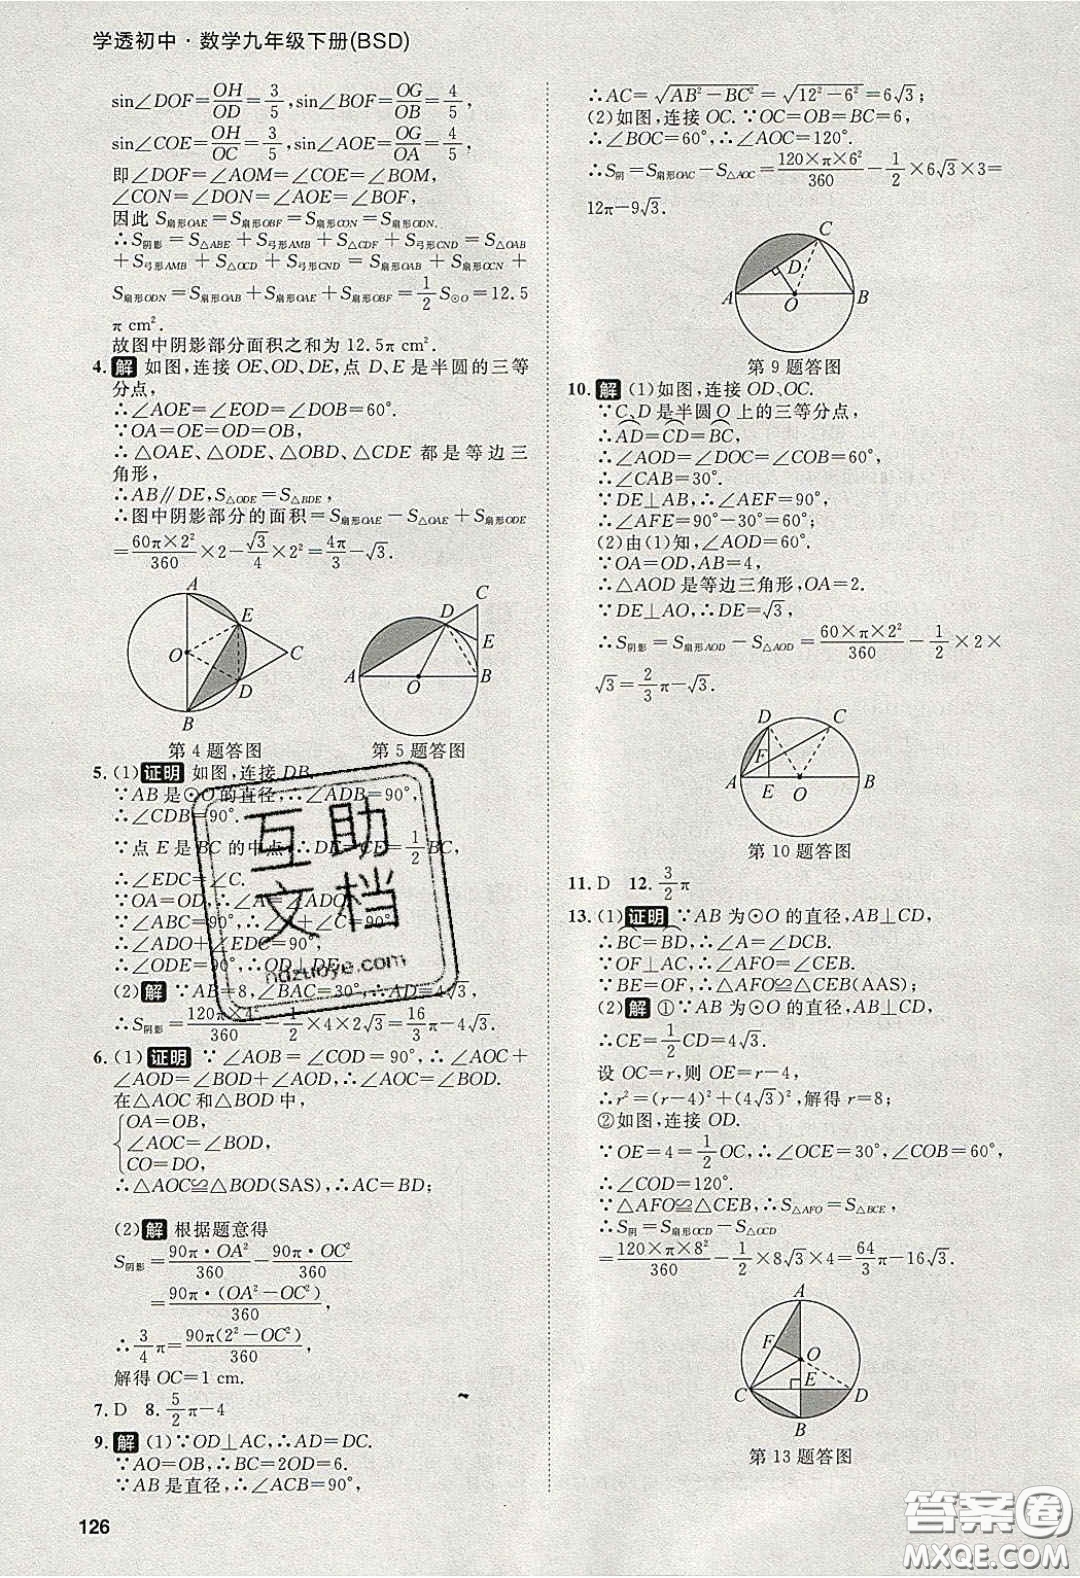 学透初中·数学九年级下册(BSD)
sin∠DOF=OH/OD=3/5,sin∠BOF=OG/OB=4/5,
sin∠COE=OH/OC=3/5,sin∠AOE=OG/OA=4/5,
即∠DOF=∠AOM=∠COE=∠BOM,
∠CON=∠DON=∠AOE=∠BOF,
因此 S扇形OAE=S扇形OBF=S扇形CON=S扇形ODN.
∴S阴影=S△ABE+S弓形AMB+S△CDF+S弓形CND=S△OAB
+S弓形AMB+S△OCD+S弓形CND=S扇形OAB+S扇形OCN+
S扇形ODN=S扇形OAB+S扇形OAE+S扇形OBF=1/2 S⊙O=12.5
π cm².
故图中阴影部分面积之和为 12.5π cm².
4. 解 如图,连接 OE、OD、DE,点 D、E 是半圆的三等
分点,
∴∠AOE=∠EOD=∠DOB=60°.
∵OA=OE=OD=OB,
∴△OAE、△ODE、△OBD、△CDE 都是等边三
角形,
∴AB∥DE,S△ODE=S△BDE,
∴图中阴影部分的面积=S扇形OAE−S△OAE+S扇形ODE
=60π×2²/360×2−√3/4×2²=4π/3−√3.
A
E
O
C
D
B
第 4 题答图
C
D
E
A
O
B
第 5 题答图
5. (1) 证明 如图,连接 DB,
∵AB 是⊙O 的直径,∴∠ADB=90°,
∴∠CDB=90°.
∵点 E 是 BC 的中点,∴DE=CE=1/2 BC,
∴∠EDC=∠C.
∵OA=OD,∴∠A=∠ADO,
∵∠ABC=90°,∴∠A+∠C=90°,
∴∠ADO+∠EDC=90°,
∴∠ODE=90°,∴OD⊥DE;
(2) 解 ∵AB=8,∠BAC=30°,∴AD=4√3,
∴S阴影=120π×4²/360−1/2×4×2√3=16/3π−4√3.
6. (1) 证明 ∵∠AOB=∠COD=90°,∴∠AOC+
∠AOD=∠BOD+∠AOD,∴∠AOC=∠BOD.
在△AOC 和△BOD 中,
OA=OB,
∠AOC=∠BOD,
CO=DO,
∴△AOC≌△BOD(SAS),∴AC=BD;
(2) 解 根据题意得
S阴影=90π·OA²/360−90π·OC²/360
=90π·(OA²−OC²)/360,
∴3/4π=90π(2²−OC²)/360,
解得 OC=1 cm.
7. D 8. 5/2π−4
9. 解 (1)∵OD⊥AC,∴AD=DC.
∵AO=OB,∴BC=2OD=6.
∵AB 是直径,∴∠ACB=90°,
126
∴AC=√AB²−BC²=√12²−6²=6√3;
(2)如图,连接 OC.∵OC=OB=BC=6,
∴∠BOC=60°,∴∠AOC=120°.
∴S阴=S扇形OAC−S△AOC=120×π×6²/360−1/2×6√3×3=
12π−9√3.
C
D
A
O
B
第 9 题答图
10. 解 (1)如图,连接 OD、OC.
∵C、D 是半圆 O 上的三等分点,
∴AD=CD=BC,
∴∠AOD=∠DOC=∠COB=60°,
∴∠CAB=30°.
∵DE⊥AB,∴∠AEF=90°,
∴∠AFE=90°−30°=60°;
(2)由(1)知,∠AOD=60°.
∵OA=OD,AB=4,
∴△AOD 是等边三角形,OA=2.
∵DE⊥AO,∴DE=√3,
∴S阴影=S扇形AOD−S△AOD=60×π×2²/360−1/2×2×
√3=2/3π−√3.
D
C
F
A
E
O
B
第 10 题答图
11. D 12. 3/2π
13. (1) 证明 ∵AB 为⊙O 的直径,AB⊥CD,
∴BC=BD,∴∠A=∠DCB.
∵OF⊥AC,∴∠AFO=∠CEB.
∵BE=OF,∴△AFO≌△CEB(AAS);
(2) 解 ①∵AB 为⊙O 的直径,AB⊥CD,
∴CE=1/2 CD=4√3.
设 OC=r,则 OE=r−4,
∴r²=(r−4)²+(4√3)²,解得 r=8;
②如图,连接 OD.
∵OE=4=1/2 OC,∴∠OCE=30°,∠COB=60°,
∴∠COD=120°.
∵△AFO≌△CEB,∴S△AFO=S△BCE,
∴S阴=S扇形OCD−S△OCD
=120×π×8²/360−1/2×8√3×4=64/3π−16√3.
A
F
O
E
C
D
B
第 13 题答图
互助
文档
答案圈
MXQE.COM